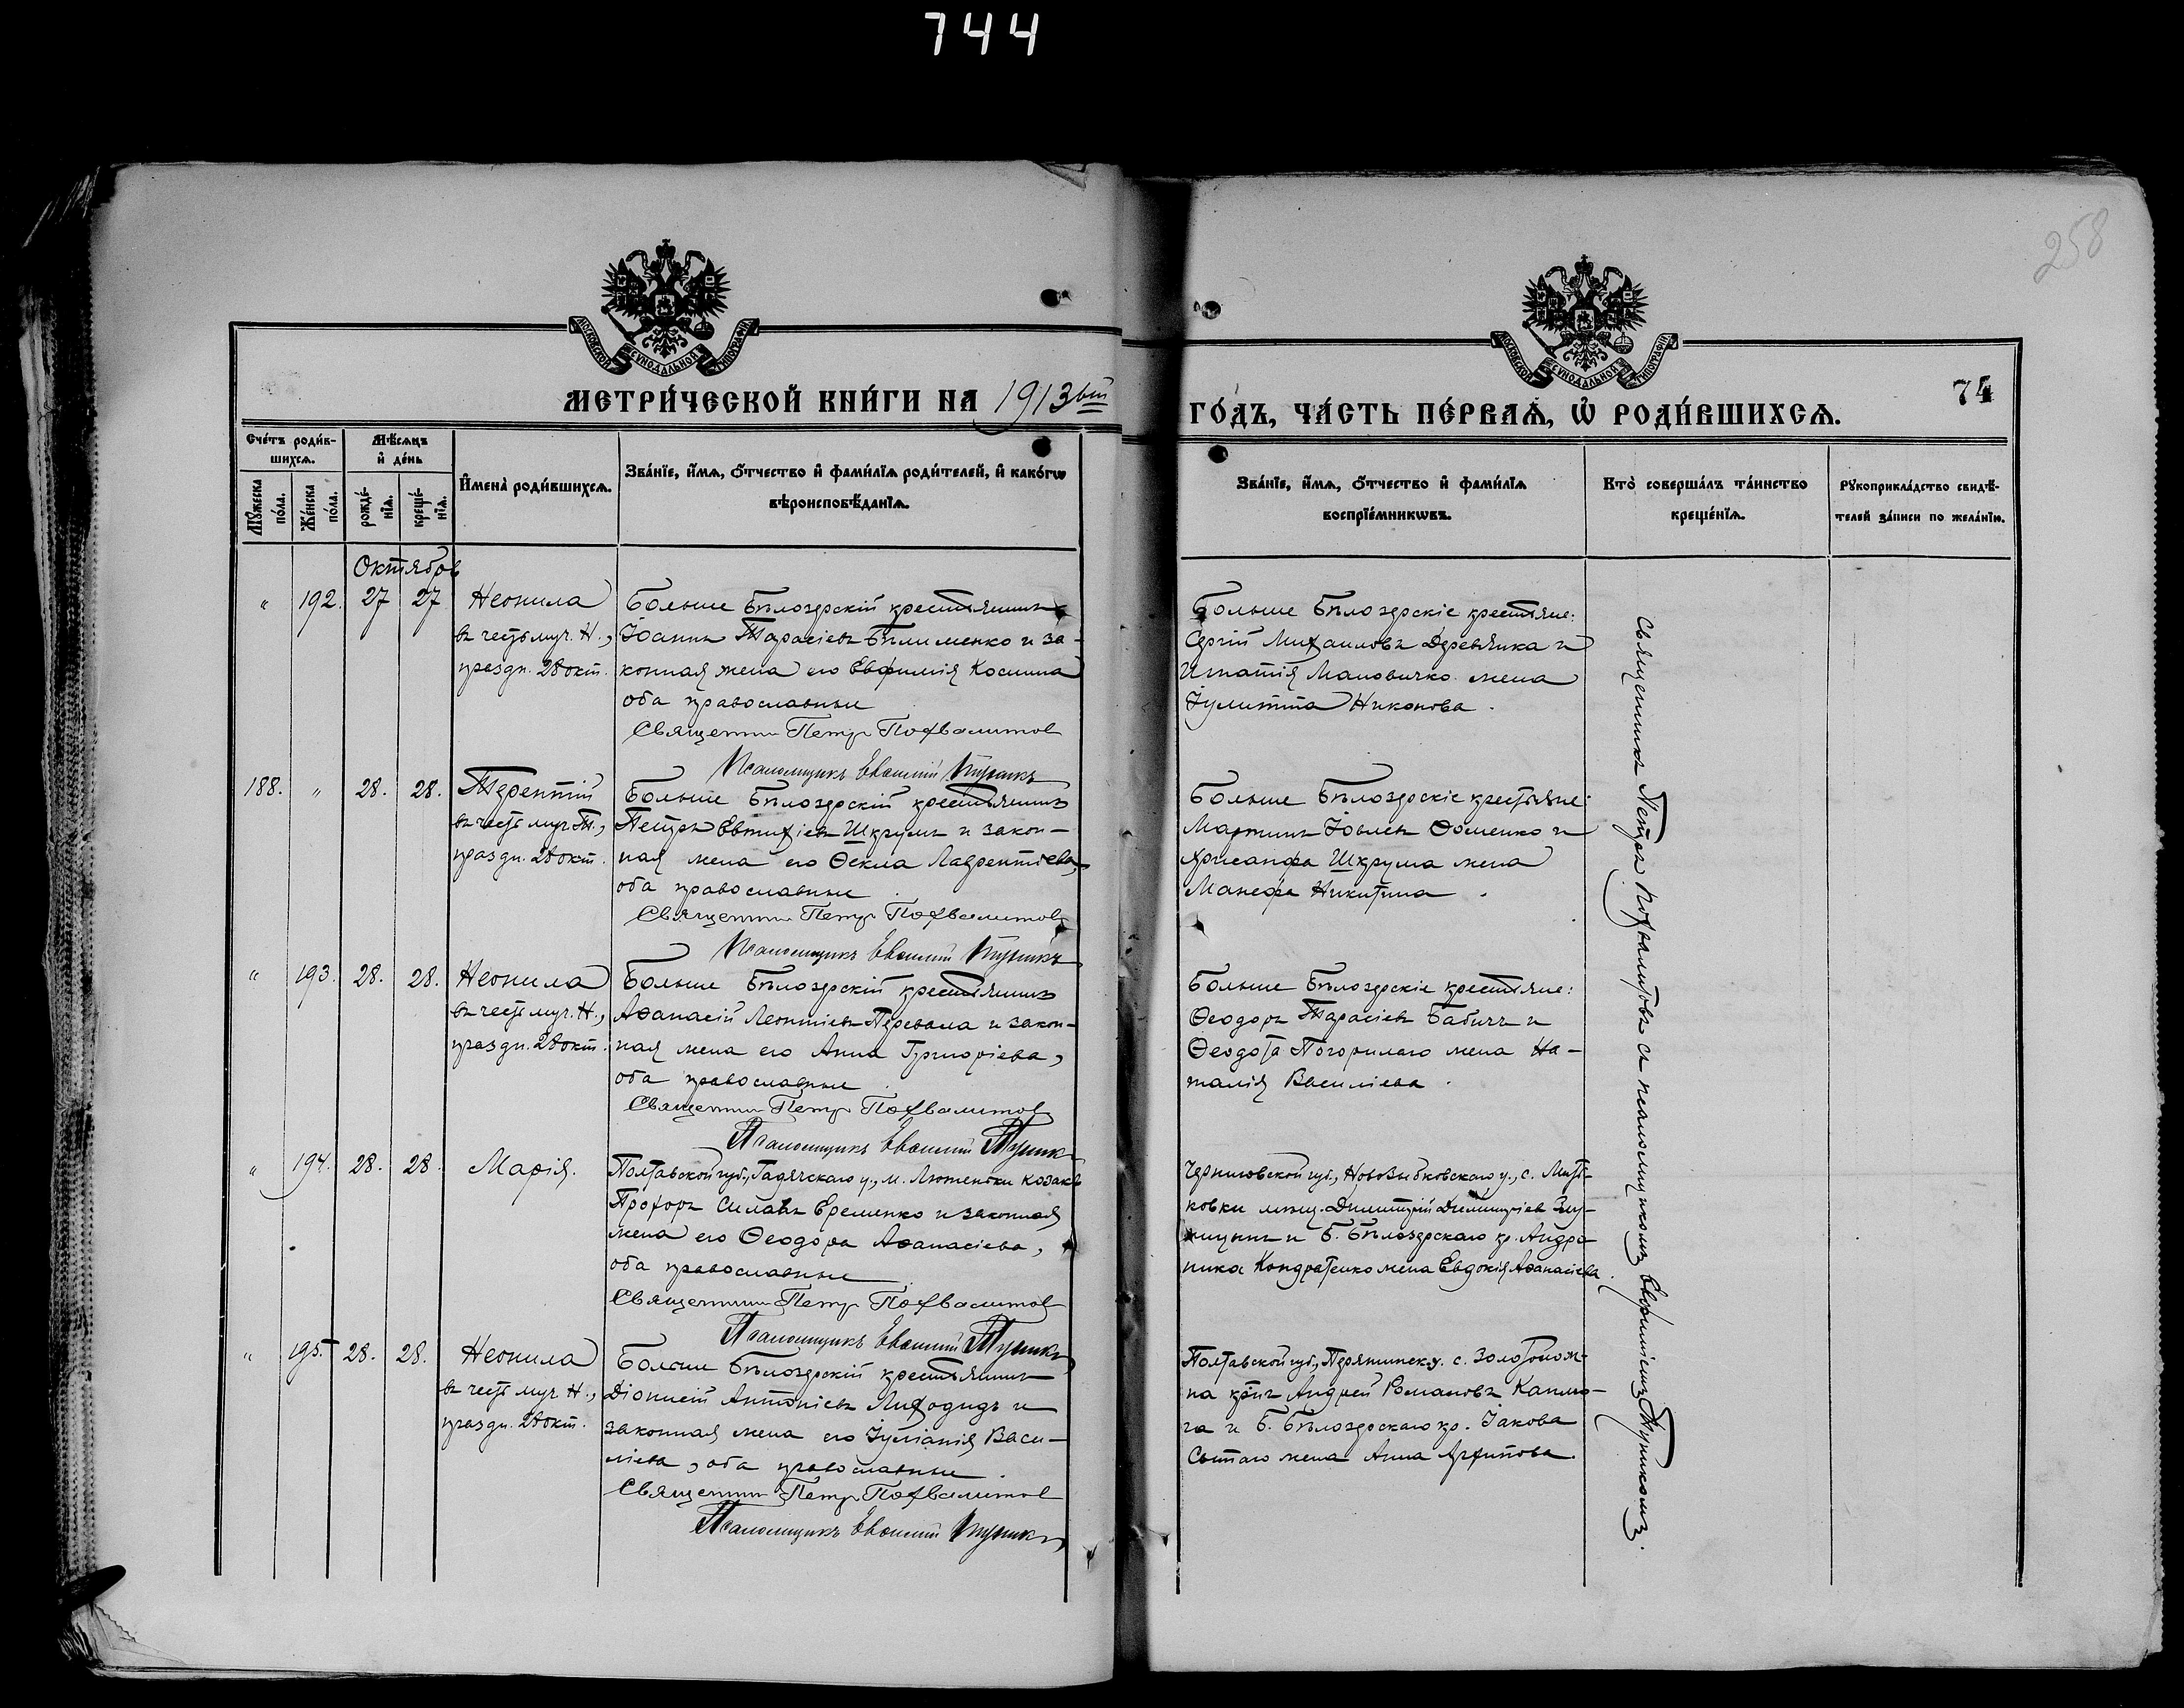 744
258
МОСКОВСКОЙ СѴНОДАЛЬНОЙ ТИПОГРАФІИ
МОСКОВСКОЙ СѴНОДАЛЬНОЙ ТИПОГРАФІИ
МЕТРИ́ЧЕСКОЙ КНИ́ГИ НА 1913ый
ГО́ДЪ, ЧА́СТЬ ПЕ́РВАѦ, Ѡ҆ РОДИ́ВШИХСѦ.
74
Сче́тъ роди́в-
шихсѧ.
Мꙋ́жеска
по́ла.
Же́нска
по́ла.
Мѣ́сѧцъ
и҆ де́нь
рожде́-
нїѧ.
креще́-
нїѧ.
И҆мена̀ роди́вшихсѧ.
Зва́нїе, и҆́мѧ, ѻ҆́тчество и҆ фами́лїѧ роди́телей, и҆ како́гѡ
вѣроисповѣ́данїѧ.
Зва́нїе, и҆́мѧ, ѻ҆́тчество и҆ фами́лїѧ
воспрїе́мникѡвъ.
Кто̀ соверша́лъ та́инство
креще́нїѧ.
Рꙋкоприкла́дство свидѣ́-
телей за́писи по жела́нїю.
Октябрь
" 192. 27 27 Неонила
въ честь муч. Н.,
праздн. 28 окт.
Больше Бѣлозерскій крестьянинъ
Іоаннъ Тарасіевъ Билименко и за-
конная жена его Евфимія Космина
оба православные
Священник Петр Похвалитов
Псаломщикъ Евфимій Пушикъ
Больше Бѣлозерскіе крестьяне:
Сергій Михаиловъ Деревянка и
Игнатія Маловичко жена
Іулитта Никонова.
188. " 28. 28. Терентій
въ честь муч. Т.,
праздн. 28 окт.
Больше Бѣлозерскій крестьянинъ
Петръ Евтихіевъ Шкрумъ и закон-
ная жена его Ѳекла Лаврентіева,
оба православные.
Священник Петр Похвалитов
Псаломщикъ Евфимій Пушикъ
Больше Бѣлозерскіе крестьяне:
Мартинъ Іовлевъ Ѳоменко и
Хрисанфа Шкрума жена
Манефа Никитина.
" 193. 28. 28. Неонила
въ честь муч. Н.,
праздн. 28 окт.
Больше Бѣлозерскій крестьянинъ
Аѳанасій Леонтіевъ Перевала и закон-
ная жена его Анна Григоріева,
оба православные.
Священник Петр Похвалитов
Псаломщикъ Евфимій Пушикъ
Больше Бѣлозерскіе крестьяне:
Ѳеодоръ Тарасіевъ Бабичъ и
Ѳеодота Погорилаго жена На-
талія Василіева.
" 194. 28. 28. Марія.
Полтавской губ., Гадячскаго у., м. Лютеньки козакъ
Прохоръ Силавъ Еременко и законная
жена его Ѳеодора Аѳанасіева,
оба православные.
Священник Петр Похвалитов
Псаломщикъ Евфимій Пушикъ
Черниговской губ., Новозыбковскаго у., с. Мить-
ковки мѣщ. Димитрій Димитріевъ
и Б. Бѣлозерскаго кр. Андро-
ника Кондратенко жена Евдокія Аѳанасіева.
" 195. 28. 28. Неонила
въ честь муч. Н.,
праздн. 28 окт.
Больше Бѣлозерскій крестьянинъ
Діонисій Антоніевъ Лиходидъ и
законная жена его Іуліанія Васи-
ліева, оба православные.
Священник Петр Похвалитов
Псаломщикъ Евфимій Пушикъ
Полтавской губ., Пирятинск. у. с.
кр-нъ Андрей Романовъ
и Б. Бѣлозерскаго кр. Іакова
Сытаго жена Анна Архипова.
Священникъ Петръ Похвалитовъ съ псаломщикомъ Евфиміемъ Пушикомъ.